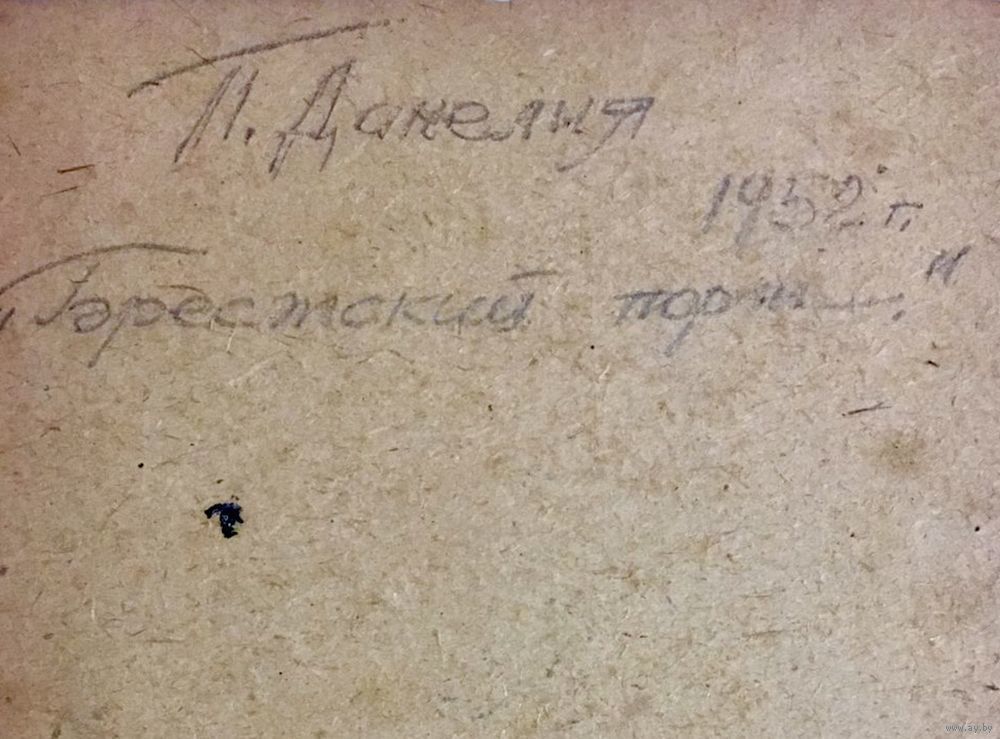 П. Данелия
1952 г.
"Брестский порт."
www.ay.by